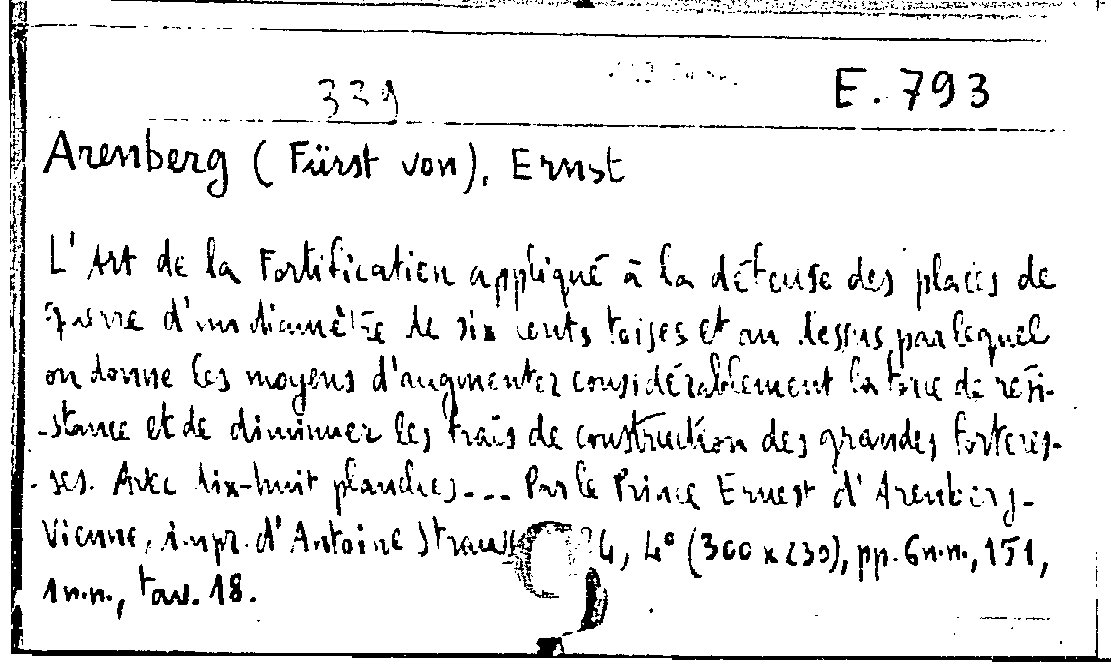 339 E. 793
Arenberg (Fürst von), Ernst
L'Art de la Fortification appliqué à la défense des places de
guerre d'un diamètre de six cents toises et au dessus, par lequel
on donne les moyens d'augmenter considérablement la force de resi-
-stance et de diminuer les frais de construction des grandes forteres-
-ses. Avec dix-huit planches... Par le Prince Ernest d'Arenberg-
Vienne, impr. d'Antoine Strauss 24, 4° (300 x 230), pp. 6 n.n., 151,
1 n.n., tav. 18.